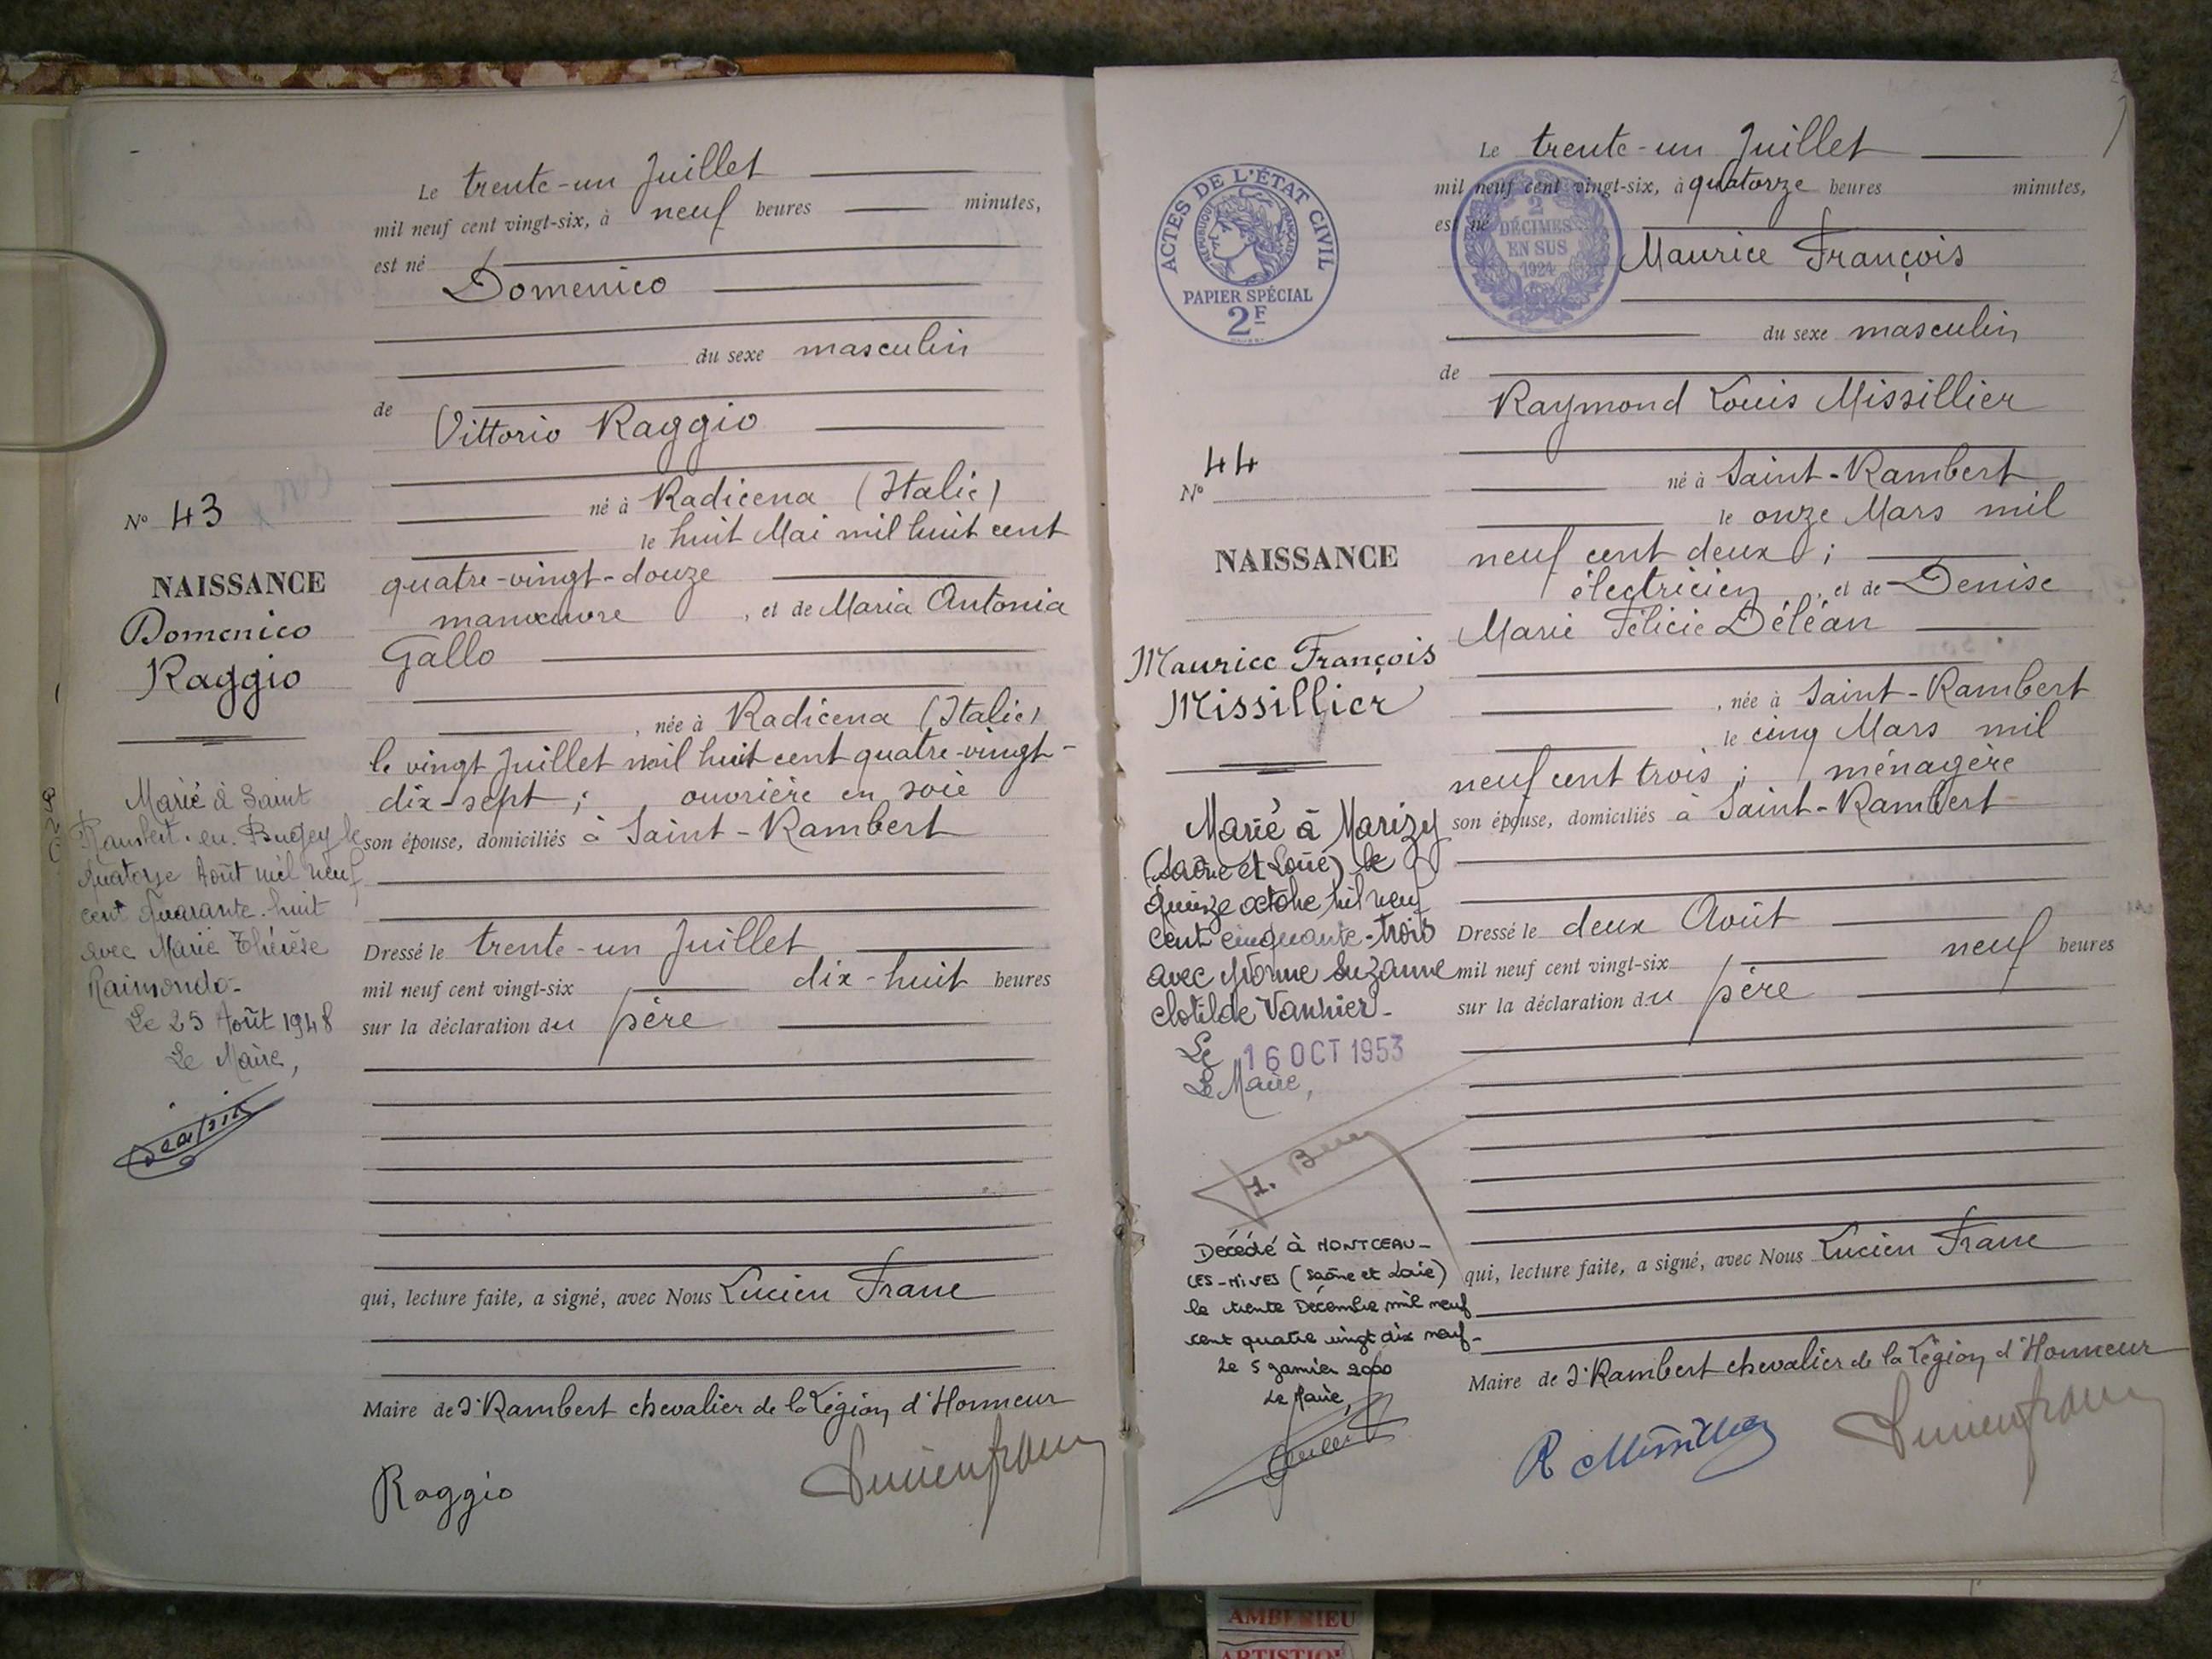 Le trente-un Juillet
mil neuf cent vingt-six, à neuf heures minutes,
est né
Domenico
du sexe masculin
de
Vittorio Raggio
né à Radicena (Italie)
le huit Mai mil huit cent
quatre-vingt-douze
manœuvre, et de Maria Antonia
Gallo
, née à Radicena (Italie)
le vingt Juillet mil huit cent quatre-vingt-
dix-sept ; ouvrière en soie
son épouse, domiciliés à Saint-Rambert
Dressé le trente-un Juillet
mil neuf cent vingt-six dix-huit heures
sur la déclaration du père
qui, lecture faite, a signé, avec Nous Lucien Franc
Maire de St Rambert chevalier de la Légion d'Honneur
Raggio
Lucien franc
N° 43
NAISSANCE
Domenico
Raggio
Marié à Saint
Rambert-en-Bugey le
quatorze Août mil neuf
cent quarante-huit
avec Marie Thérèse
Raimondo-
Le 25 Août 1948
Le Maire,
ACTES DE L'ÉTAT CIVIL
RÉPUBLIQUE FRANÇAISE
PAPIER SPÉCIAL
2F
2
DÉCIMES
EN SUS
1924
Le trente-un Juillet
mil neuf cent vingt-six, à quatorze heures minutes,
est né
Maurice François
du sexe masculin
de
Raymond Louis Missillier
né à Saint-Rambert
le onze Mars mil
neuf cent deux ;
électricien, et de Denise
Marie Félicie Déléan
, née à Saint-Rambert
le cinq Mars mil
neuf cent trois ; ménagère
son épouse, domiciliés à Saint-Rambert
Dressé le deux Août
mil neuf cent vingt-six neuf heures
sur la déclaration du père
qui, lecture faite, a signé, avec Nous Lucien Franc
Maire de St Rambert chevalier de la Légion d'Honneur
R Missillier
Lucien franc
N° 44
NAISSANCE
Maurice François
Missillier
Marié à Marizy
(Saône et Loire) le
quinze octobre mil neuf
cent cinquante-trois
avec Yvonne Suzanne
Clotilde Vannier-
Le 16 OCT 1953
Le Maire,
Décédé à MONTCEAU-
LES-MINES (Saône et Loire)
le trente Décembre mil neuf
cent quatre vingt dix neuf-
Le 5 janvier 2000
Le Maire,
AMBERIEU
ARTISTIQU